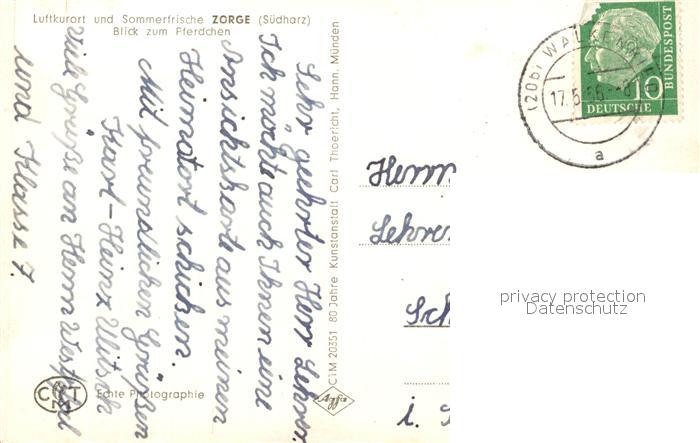 Luftkurort und Sommerfrische ZORGE (Südharz)
Blick zum Pferdchen
Sehr geehrter Herr Lehrer.
Ich möchte auch Ihnen eine
Ansichtskarte aus meinen
Heimatort schicken.
Mit freundlichen Grüßen
Karl-Heinz
viele Grüße an Herrn
und Klasse 7.
Echte Photographie
CTM 20351 80 Jahre Kunstanstalt Carl Thoericht, Hann. Münden
Agfa
(20b) WALKENRIED
17.5.56.-8
a
10
DEUTSCHE
BUNDESPOST
Herrn
Lehrer
Sch
i.
privacy protection
Datenschutz